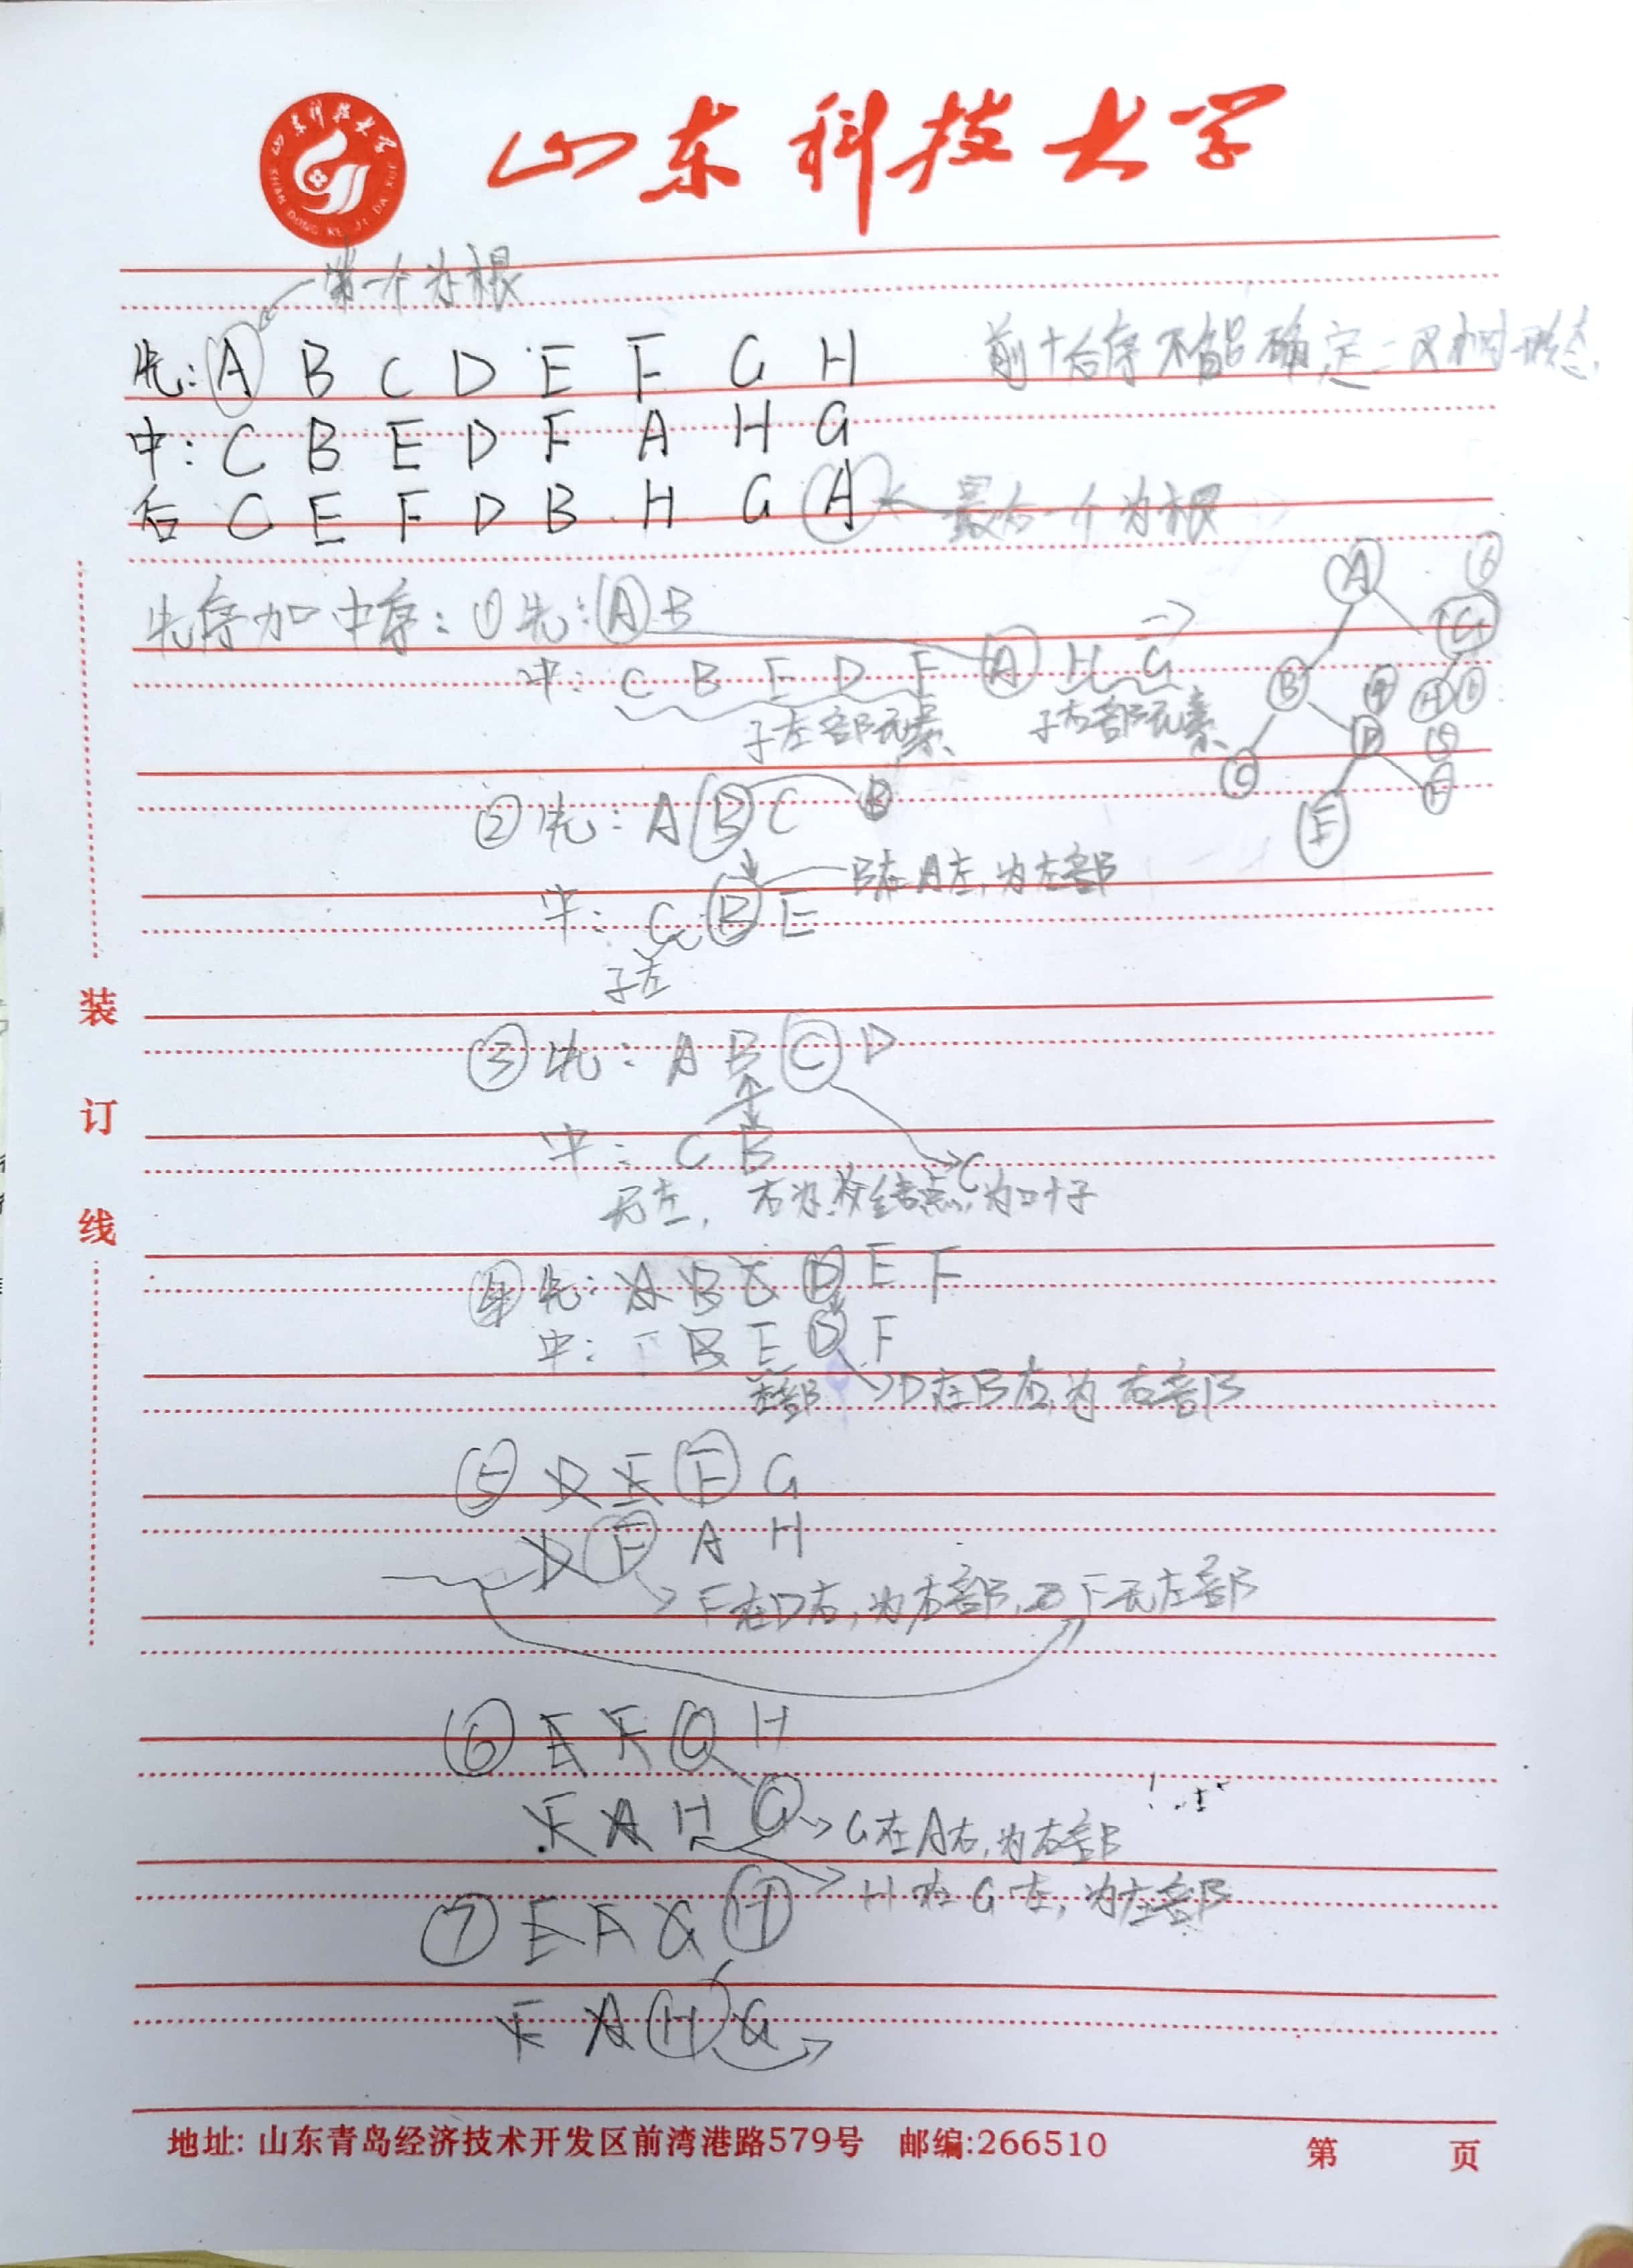 山东科技大学
第一个为根
先: A B C D E F G H
前+后序不能确定二叉树形态.
中: C B E D F A H G
后 C E F D B H G A
最后一个为根
先序加中序: ①先: A B
中: C B E D F A H G
子左部元素 子右部元素
A
G
B
D
H
C
E
F
② 先: A B C B
B在A左, 为左部
中: C B E
子左
③ 先: A B C D
中: C B
C
无左, 右为父结点, 为叶子
④ 先: A B C D E F
中: B E D F
左部 D在B右, 为右部
⑤ D E F G
D F A H
F在D右, 为右部, 且F无左部
⑥ E F G H
F A H G
G在A右, 为右部
H在G左, 为左部
⑦ E F G H
F A H G
装
订
线
地址: 山东青岛经济技术开发区前湾港路579号 邮编:266510 第 页